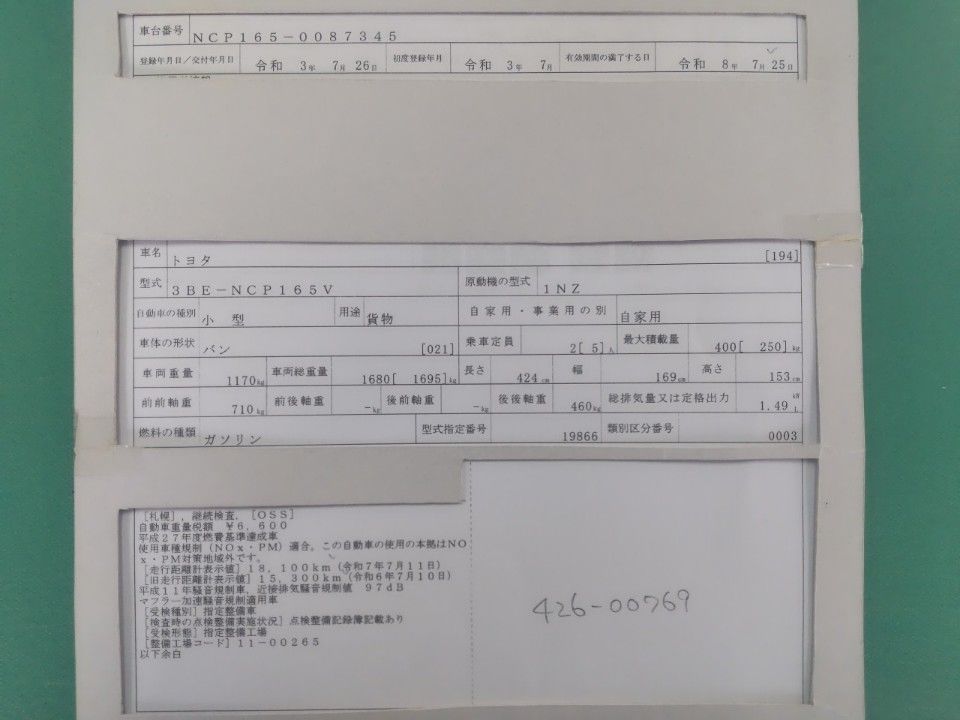 車台番号 NCP165-0087345
登録年月日/交付年月日 令和 3年 7月 26日 初度登録年月 令和 3年 7月 有効期間の満了する日 令和 8年 7月 25日
車名 トヨタ [194]
型式 3BE-NCP165V 原動機の型式 1NZ
自動車の種別 小型 用途 貨物 自家用・事業用の別 自家用
車体の形状 バン [021] 乗車定員 2[ 5]人 最大積載量 400[ 250]kg
車両重量 1170kg 車両総重量 1680[ 1695]kg 長さ 424cm 幅 169cm 高さ 153cm
前前軸重 710kg 前後軸重 -kg 後前軸重 -kg 後後軸重 460kg 総排気量又は定格出力 1.49 kW L
燃料の種類 ガソリン 型式指定番号 19866 類別区分番号 0003
[札幌],継続検査,[OSS]
自動車重量税額 ¥6,600
平成27年度燃費基準達成車
使用車種規制(NOx・PM)適合。この自動車の使用の本拠はNO
x・PM対策地域外です。
[走行距離計表示値]18,100km(令和7年7月11日)
[旧走行距離計表示値]15,300km(令和6年7月10日)
平成11年騒音規制車,近接排気騒音規制値 97dB
マフラー加速騒音規制適用車
[受検種別]指定整備車
[検査時の点検整備実施状況]点検整備記録簿記載あり
[受検形態]指定整備工場
[整備工場コード]11-00265
以下余白
426-00769